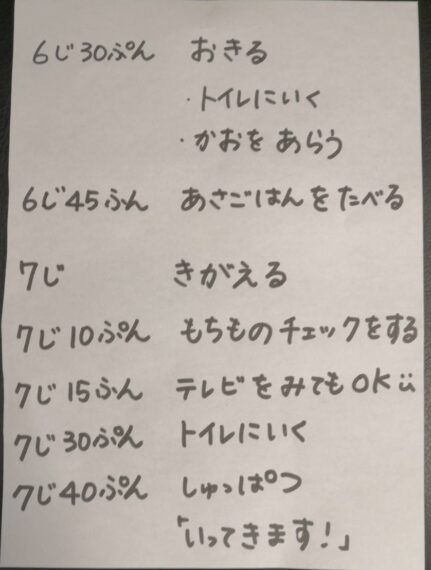 6じ30ぷん おきる
・トイレにいく
・かおを あらう
6じ45ふん あさごはんをたべる
7じ きがえる
7じ10ぷん もちものチェックをする
7じ15ふん テレビをみてもOK ü
7じ30ぷん トイレにいく
7じ40ぷん しゅっぱつ
「いってきます!」